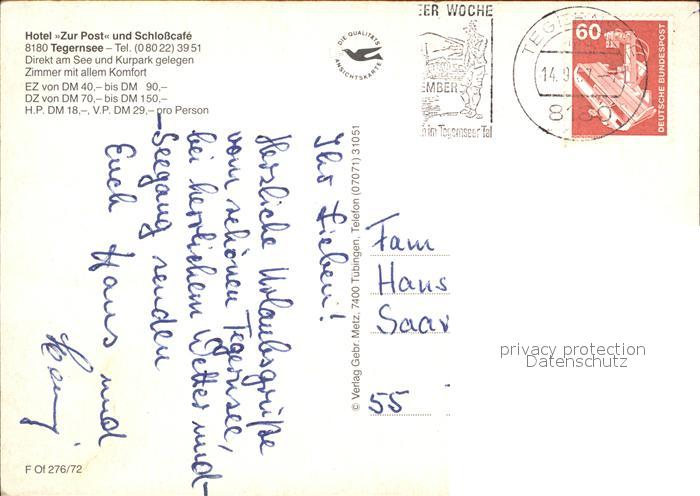 Hotel »Zur Post« und Schloßcafé
8180 Tegernsee – Tel. (0 80 22) 39 51
Direkt am See und Kurpark gelegen
Zimmer mit allem Komfort
EZ von DM 40,– bis DM 90,–
DZ von DM 70,– bis DM 150,–
H.P. DM 18,–, V.P. DM 29,– pro Person
DIE QUALITÄTS
ANSICHTSKARTE
ER WOCHE
EMBER
im Tegernseer Tal
TEGERN
14.9
8180
60
DEUTSCHE BUNDESPOST
Ihr Lieben!
Herzliche Urlaubsgrüße
vom schönen Tegernsee,
bei herrlichem Wetter und
Seegang senden
Euch Hans und
© Verlag Gebr. Metz, 7400 Tübingen, Telefon (07071) 31051
Fam
Hans
Saar
55
privacy protection
Datenschutz
F Of 276/72